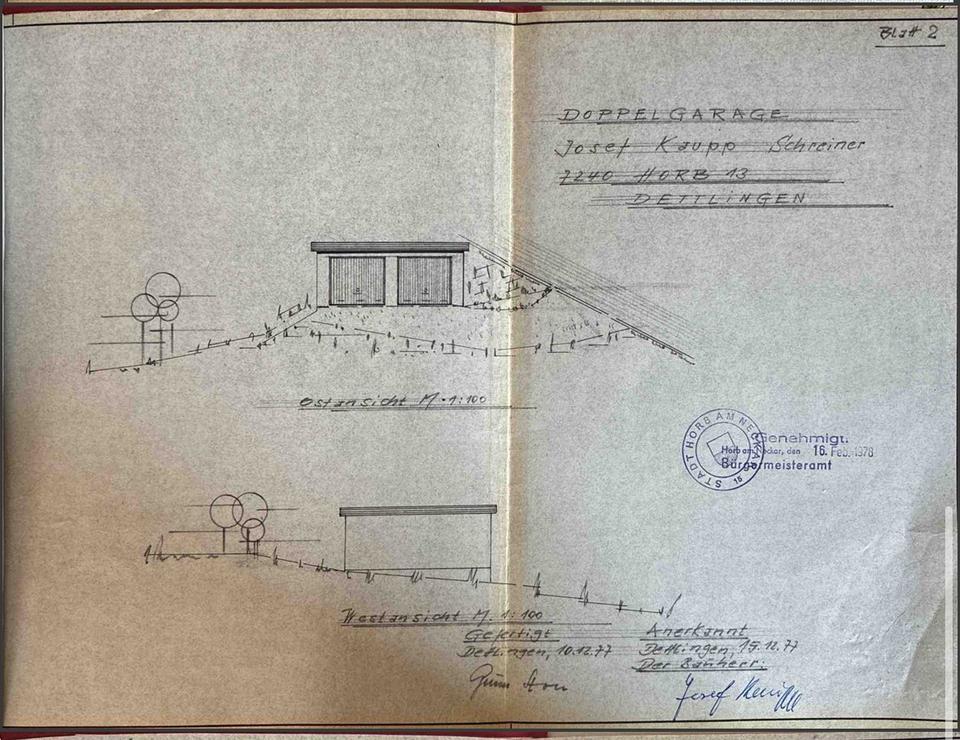 Blatt 2
DOPPELGARAGE
Josef Kaupp Schreiner
7240 HORB 13
DETTLINGEN
Ostansicht M. 1:100
STADT HORB AM NECKAR
15
Genehmigt.
Horb am Neckar, den 16. Feb. 1978
Bürgermeisteramt
Westansicht M. 1:100
Gefertigt
Dettlingen, 10.12.77
Anerkannt
Dettlingen, 15.12.77
Der Bauherr:
Josef